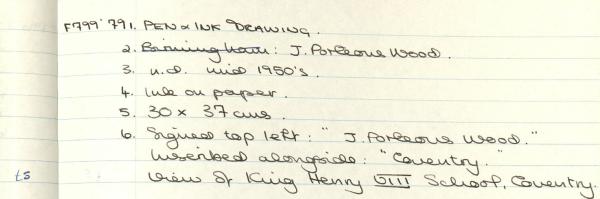 F799'791. PEN & INK DRAWING.
2. Birmingham: J. Porteous Wood.
3. n.d. mid 1950's.
4. Ink on paper.
5. 30 x 37 cms.
6. Signed top left: "J. Porteous Wood."
Inscribed alongside: "Coventry."
ts View of King Henry VIII School, Coventry.